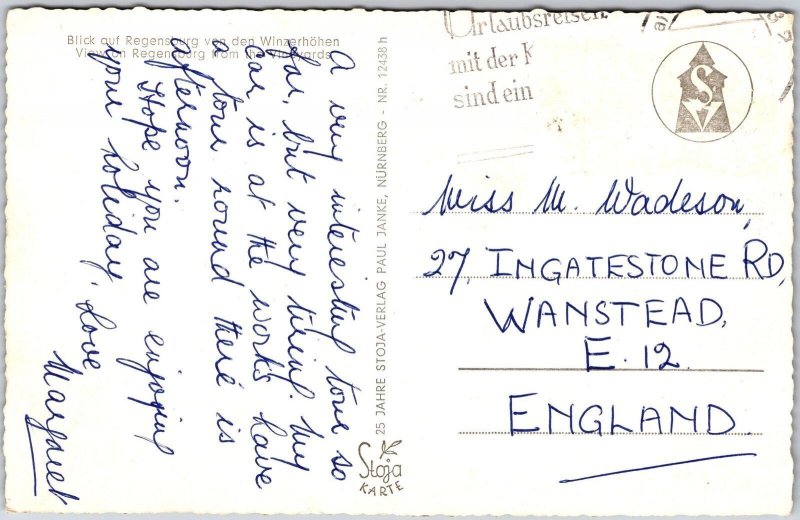 Blick auf Regensburg von den Winzerhöhen
View on Regensburg from the Vineyards
A very interesting tour so
far, but very tiring. My
car is at the works have
a tour round there is
afternoon.
Hope you are enjoying
your holiday. Love
Margaret
25 JAHRE STOJA-VERLAG PAUL JANKE, NÜRNBERG - NR. 12458 h
Stoja
KARTE
Urlaubsreisen
mit der
sind ein
S
V
Miss M. Wadeson,
27, INGATESTONE RD,
WANSTEAD,
E. 12.
ENGLAND.